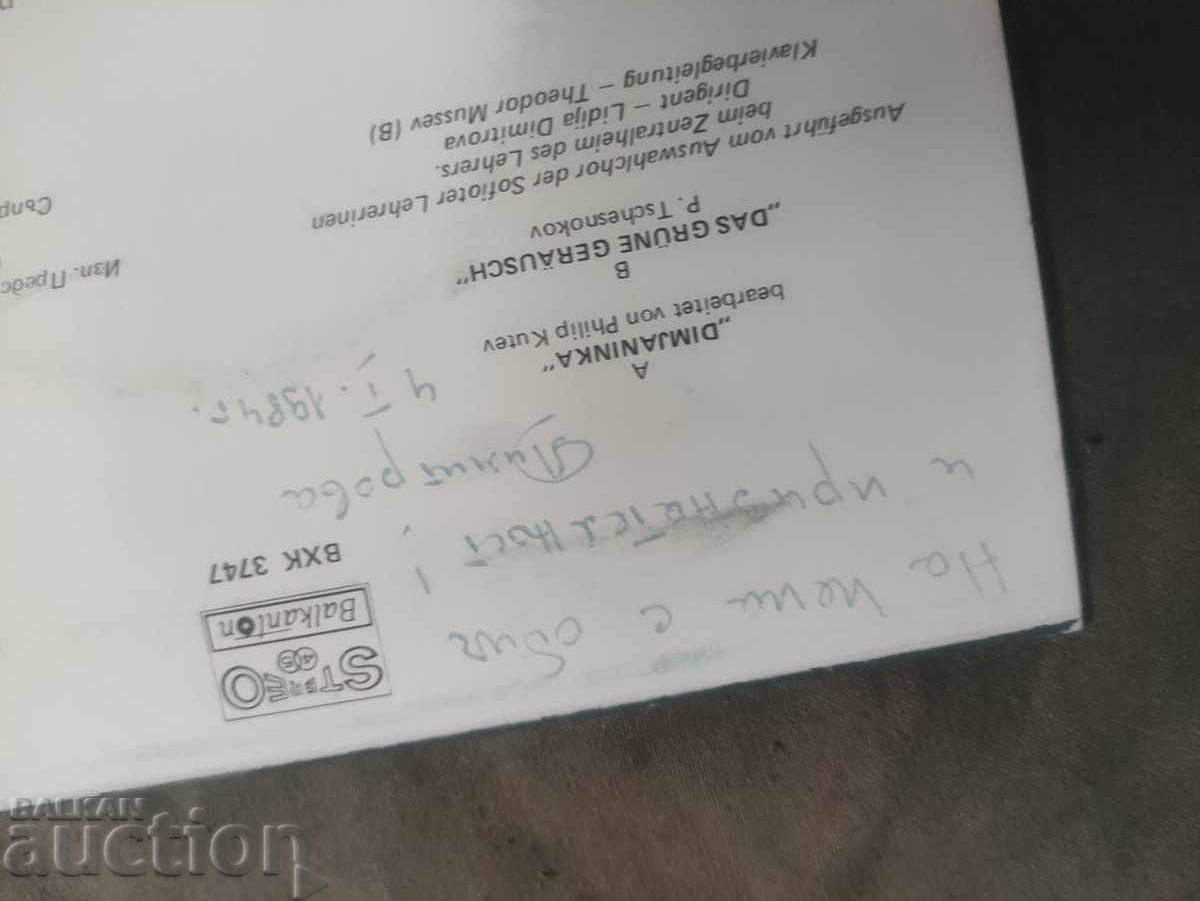 STEREO
45
Balkanton
ВХК 3747
На с обич
и признателност!
Димитрова
4 I. 1984г.
A
„DIMJANINKA“
bearbeitet von Philip Kutev
B
„DAS GRÜNE GERÄUSCH“
P. Tschesnokov
Ausgeführt vom Auswahlchor der Sofioter Lehrerinen
beim Zentralheim des Lehrers.
Dirigent – Lidija Dimitrova
Klavierbegleitung – Theodor Mussev (B)
Изп. Предс
Съпр
BALKAN
auction